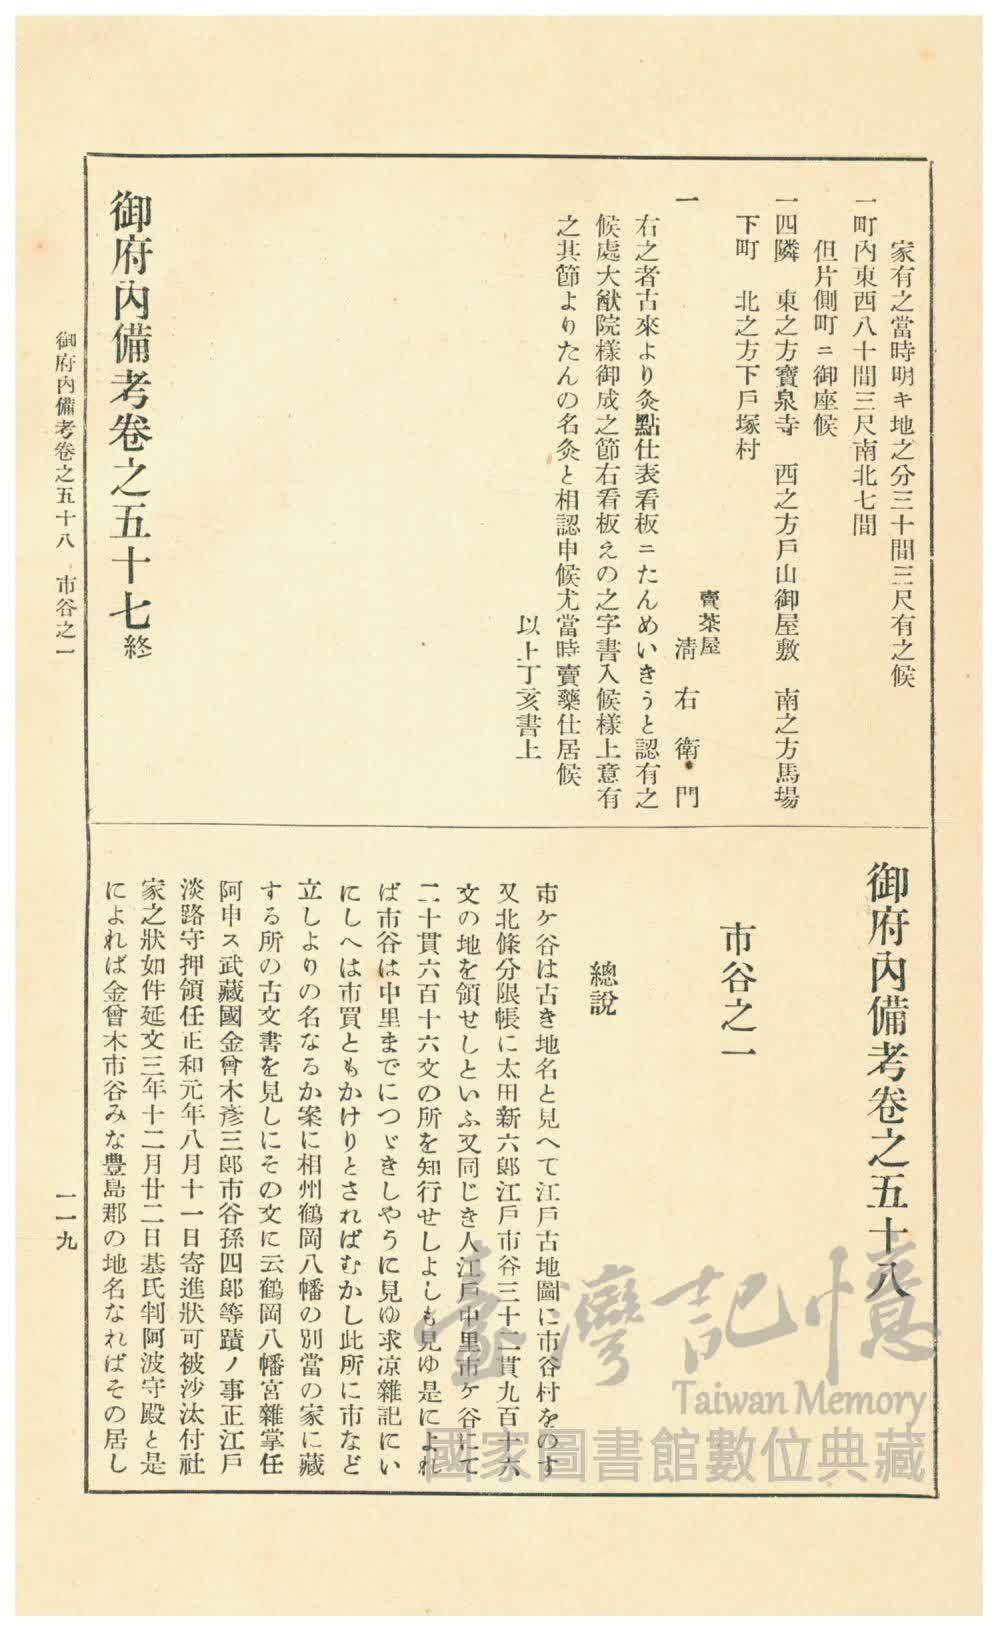 家有之當時明キ地之分三十間三尺有之候
一町內東西八十間三尺南北七間
但片側町ニ御座候
一四隣　東之方寶泉寺　西之方戶山御屋敷　南之方馬場
下町　北之方下戶塚村
賣茶屋
一　清右衛門
右之者古來より灸點仕表看板ニたんめいきうと認有之
候處大猷院樣御成之節右看板えの之字書入候樣上意有
之其節よりたんの名灸と相認申候尤當時賣藥仕居候
以上丁亥書上
御府內備考卷之五十七終
御府內備考卷之五十八
市谷之一
總說
市ケ谷は古き地名と見へて江戶古地圖に市谷村をのす
又北條分限帳に太田新六郎江戶市谷三十二貫九百十六
文の地を領せしといふ又同じき人江戶中里市ケ谷にて
二十貫六百十六文の所を知行せしよしも見ゆ是によれ
ば市谷は中里までにつゞきしやうに見ゆ求凉雜記にい
にしへは市買ともかけりとさればむかし此所に市など
立しよりの名なるか案に相州鶴岡八幡の別當の家に藏
する所の古文書を見しにその文に云鶴岡八幡宮雜掌任
阿申ス武藏國金曾木彥三郎市谷孫四郎等蹟ノ事正江戶
淡路守押領任正和元年八月十一日寄進狀可被沙汰付社
家之狀如件延文三年十二月廿二日基氏判阿波守殿と是
によれば金曾木市谷みな豊島郡の地名なればその居し
御府內備考卷之五十八　市谷之一
一一九
臺灣記憶
Taiwan Memory
國家圖書館數位典藏